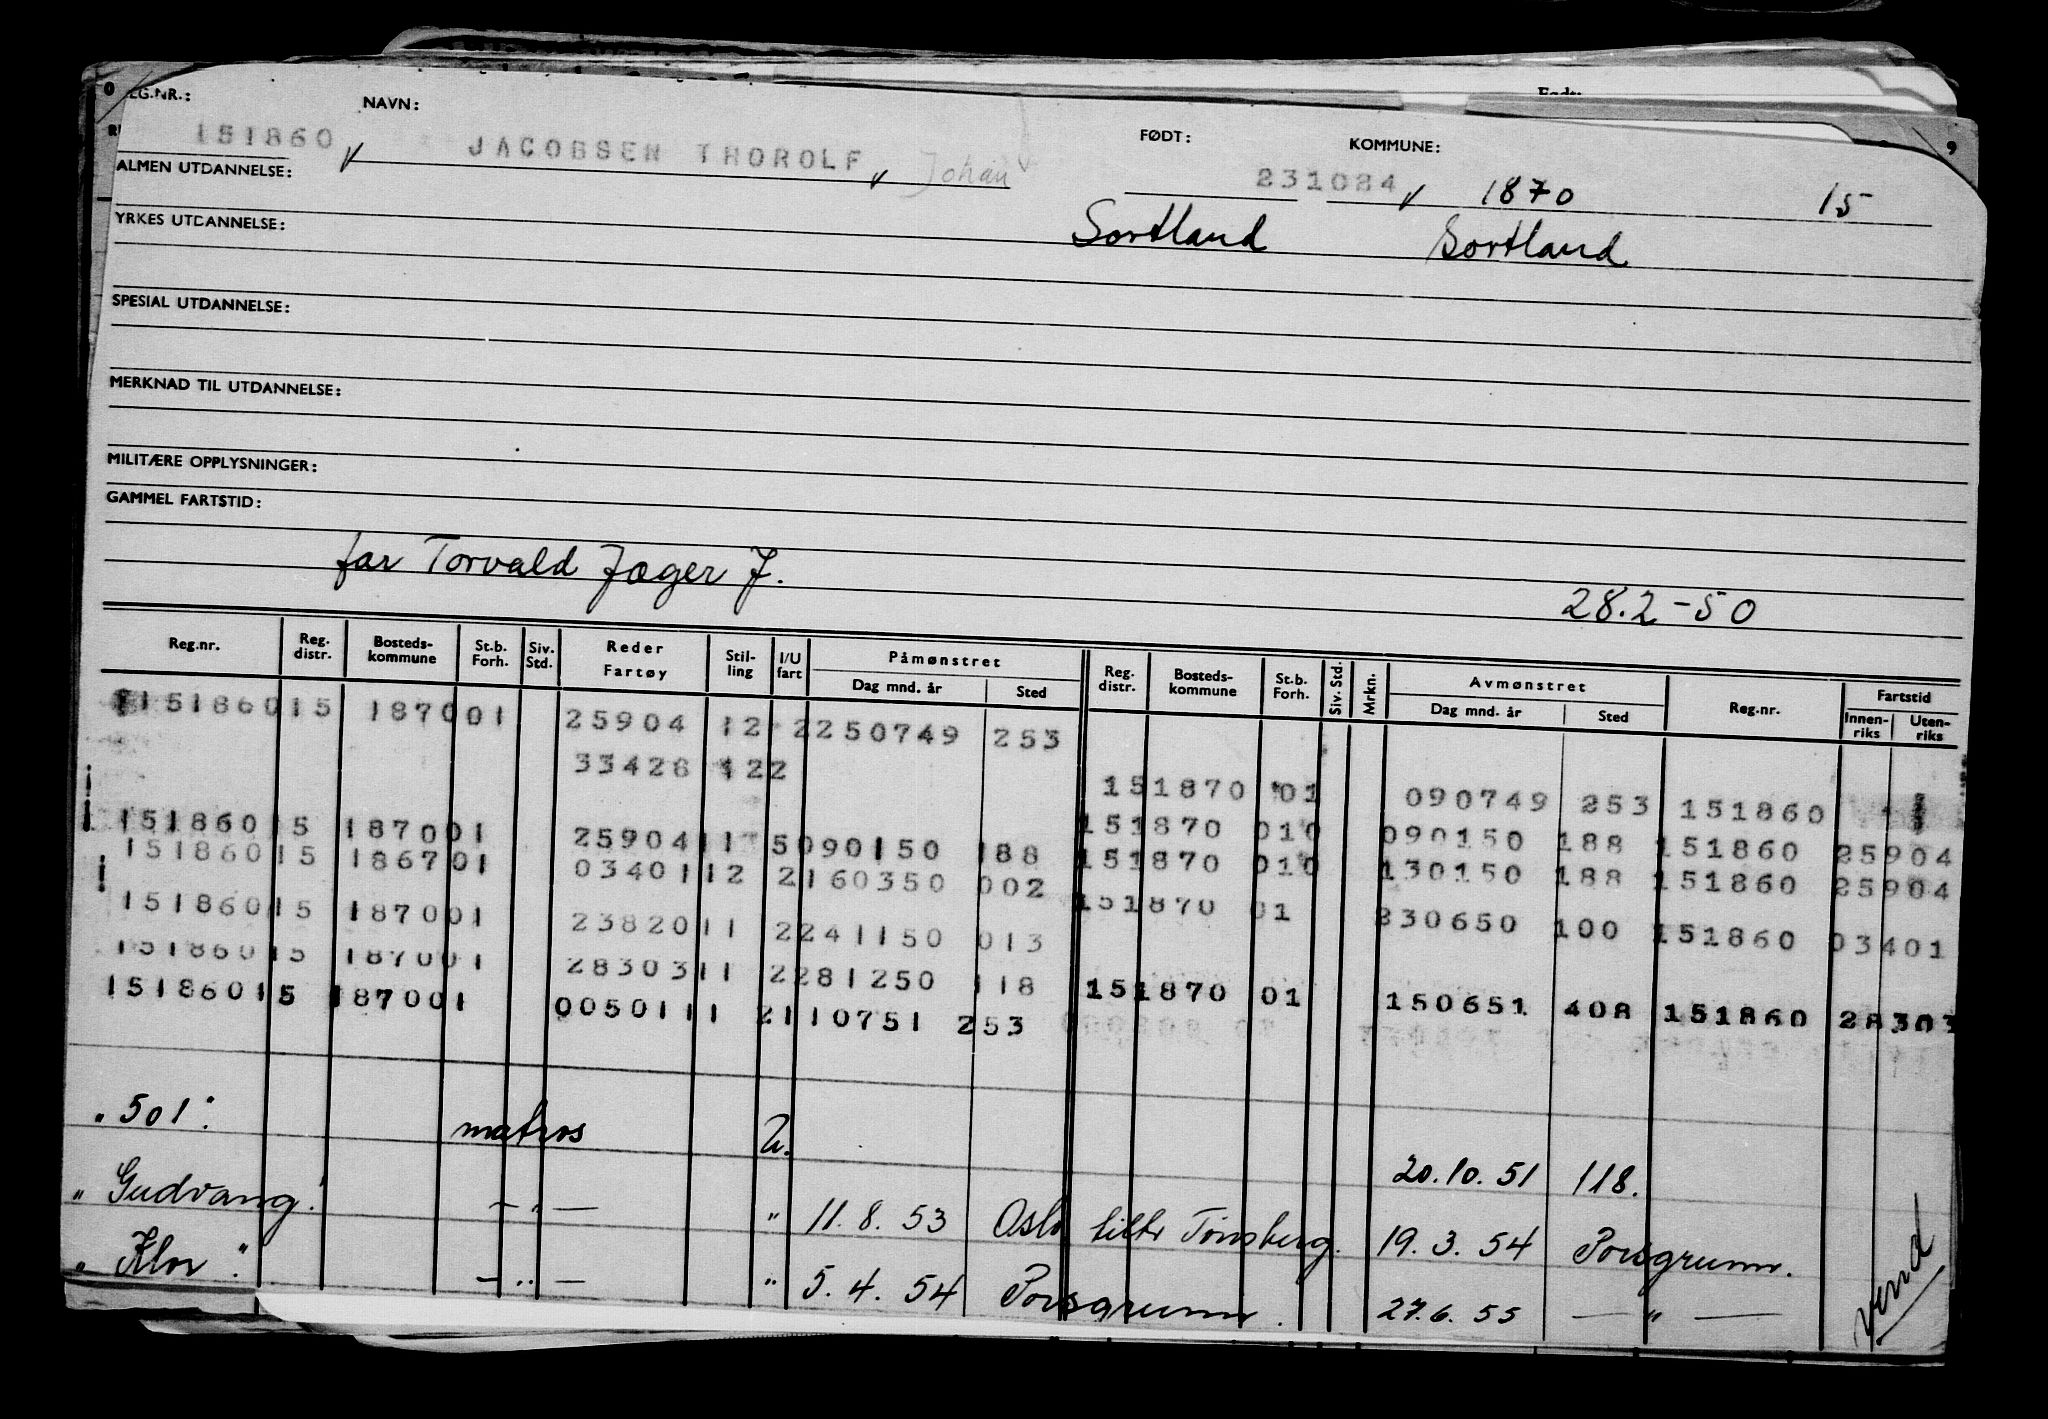 EG.NR.: NAVN: FØDT: KOMMUNE:
151860 JACOBSEN THOROLF Johan 231084 1870 15
ALMEN UTDANNELSE:
Sortland Sortland
YRKES UTDANNELSE:
SPESIAL UTDANNELSE:
MERKNAD TIL UTDANNELSE:
MILITÆRE OPPLYSNINGER:
GAMMEL FARTSTID:
far Torvald Jæger J. 28.2-50
Reg.nr. Reg. distr. Bosteds-kommune St.b. Forh. Siv. Std. Reder Fartøy Stil-ling I/U fart Påmønstret Dag mnd. år Sted Reg. distr. Bosteds-kommune St.b. Forh. Siv. Std. Mrkn. Avmønstret Dag mnd. år Sted Reg.nr. Fartstid Innen-riks Uten-riks
15186015 187001 25904 12 2250749 253
33428 122 151870 01 090749 253 151860
15186015 187001 25904 11 5090150 188 151870 010 090150 188 151860 25904
15186015 186701 03401 12 2160350 002 151870 010 130150 188 151860 25904
15186015 187001 23820 11 2241150 013 151870 01 330650 100 151860 03401
15186015 187001 28303 11 2281250 118
15186015 187001 00501 11 2110751 253 151870 01 150651 408 151860 28303
"501". matros U. 20.10.51 118.
"Gudvang". — " — " 11.8.53 Oslo tilh Tønsberg. 19.3.54 Porsgrunn.
"Klor". — " — " 5.4.54 Porsgrunn. 27.6.55 — " —
vend